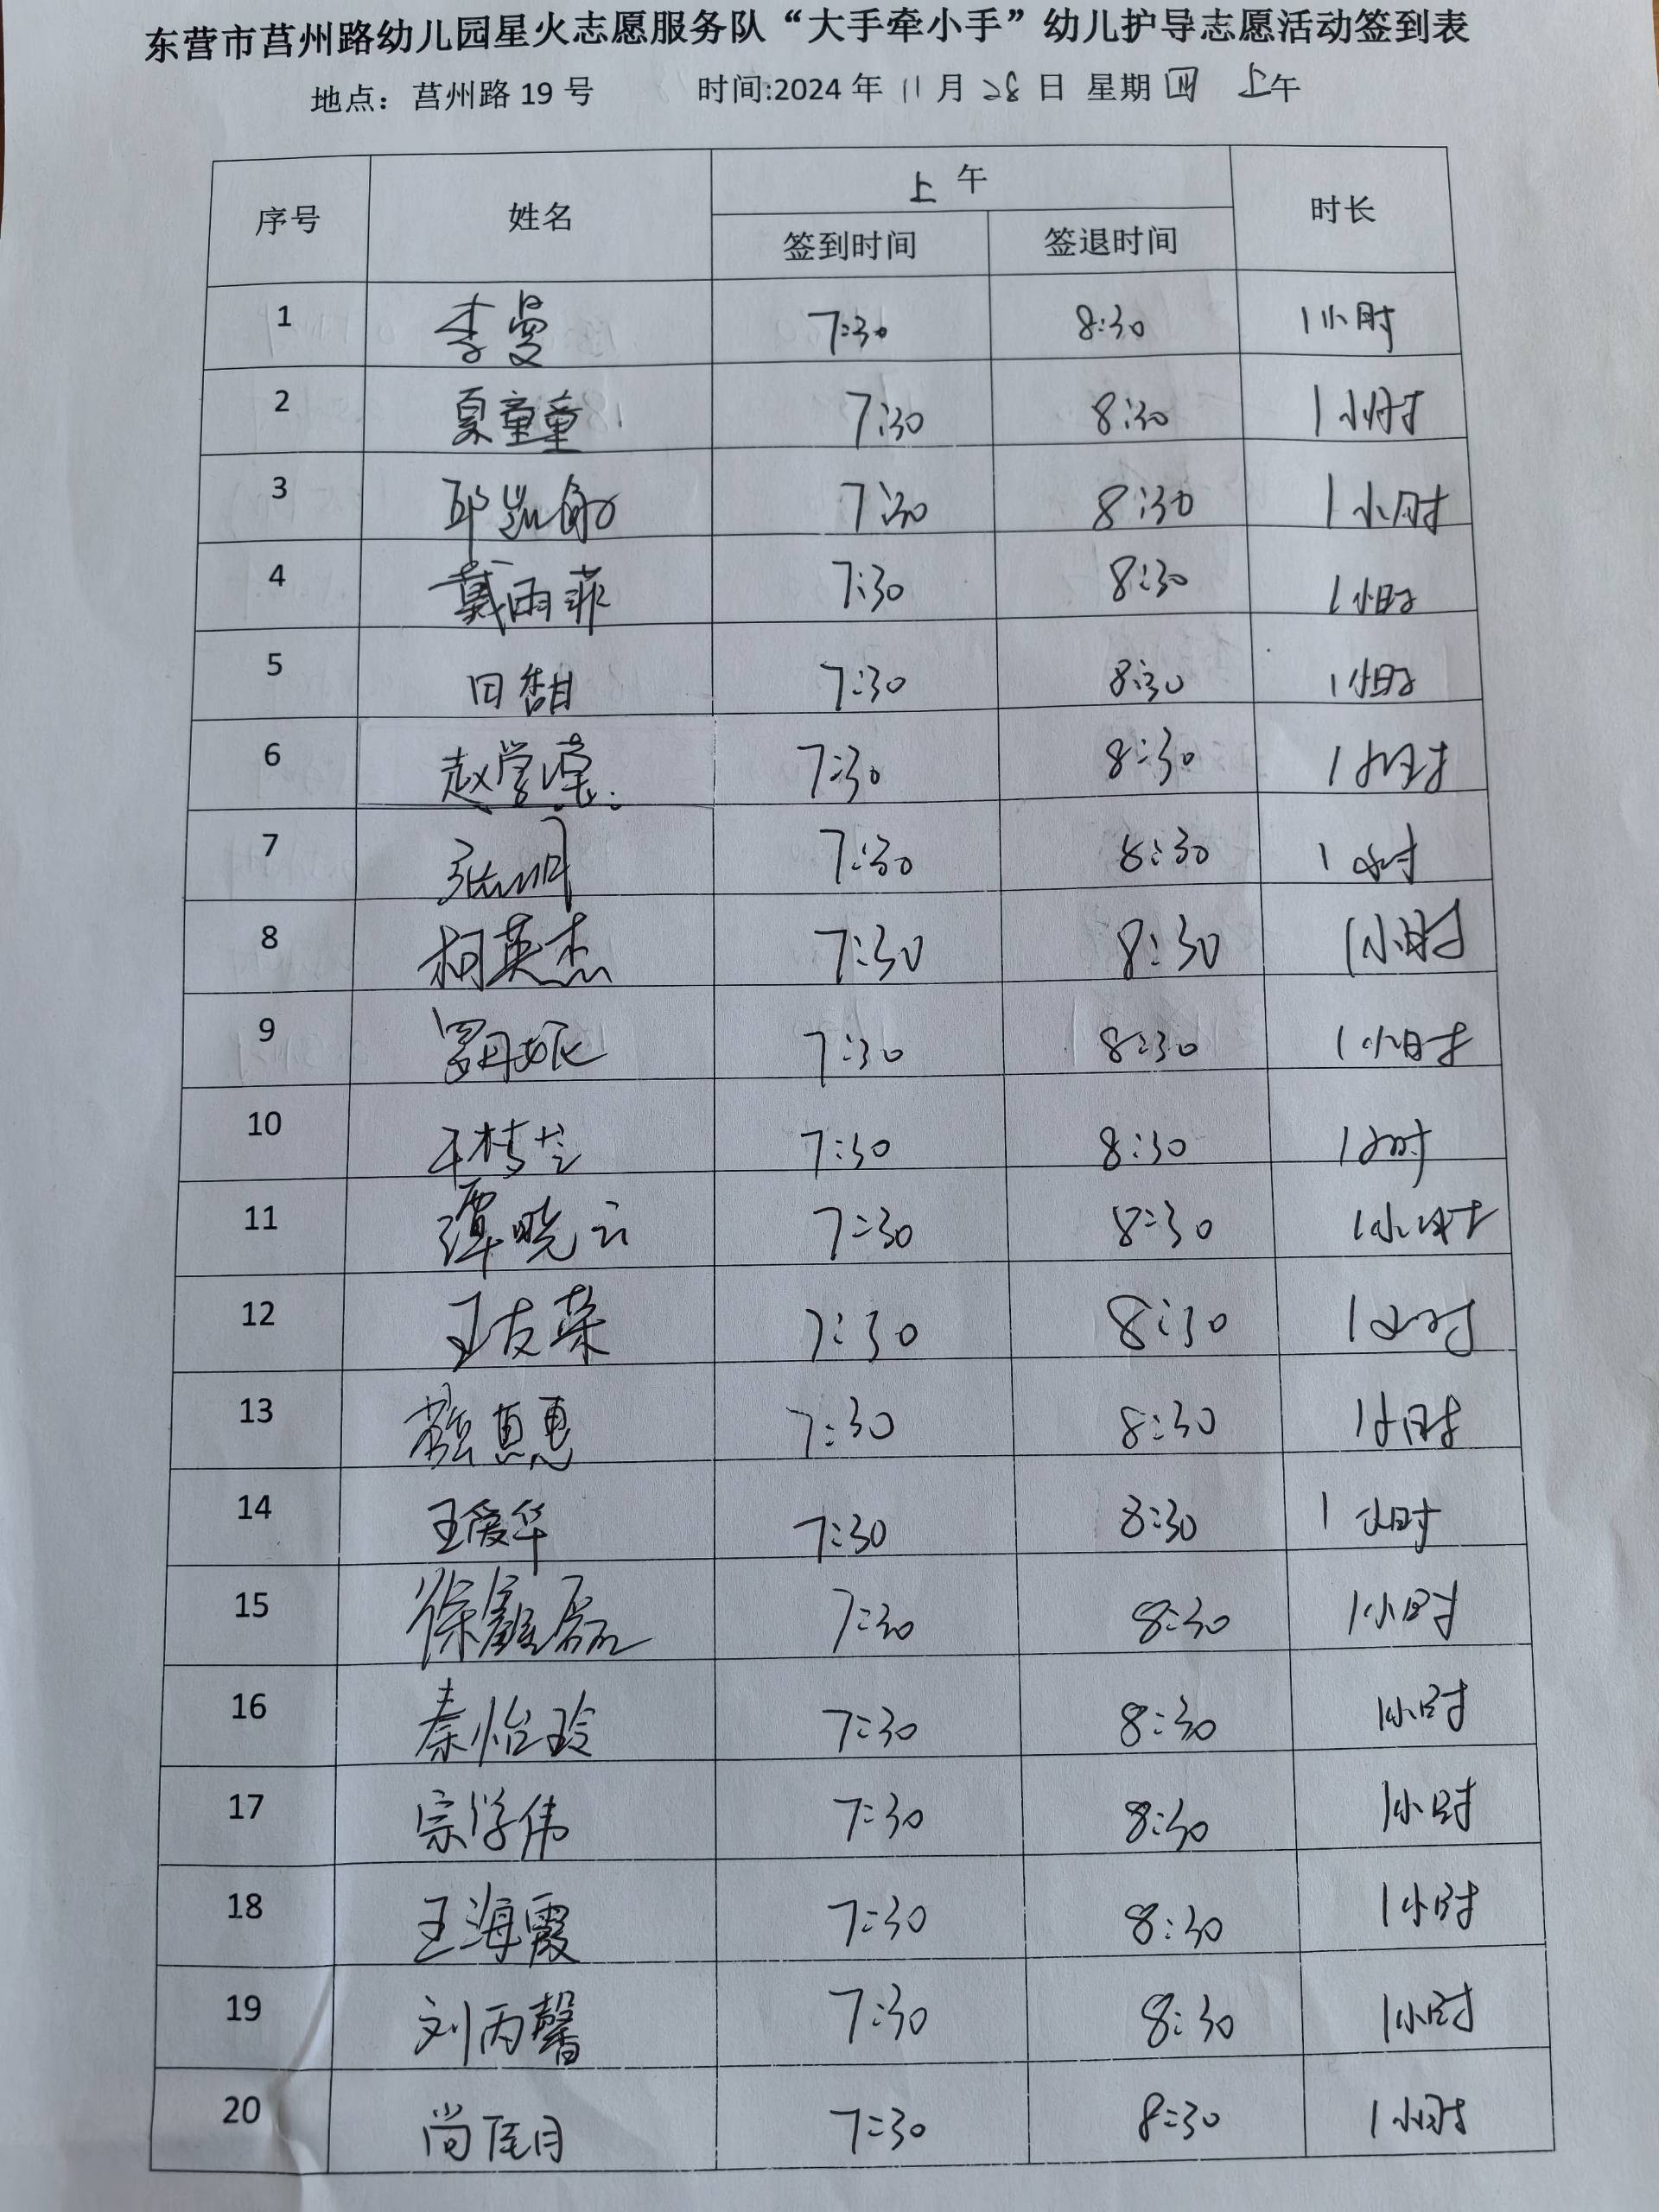 东营市莒州路幼儿园星火志愿服务队“大手牵小手”幼儿护导志愿活动签到表
地点：莒州路 19 号 时间:2024 年 11 月 28 日 星期 四 上午
序号 姓名 上 午 时长
签到时间 签退时间
1 李曼 7:30 8:30 1小时
2 夏童童 7:30 8:30 1小时
3 邱 7:30 8:30 1小时
4 戴雨菲 7:30 8:30 1小时
5 田 7:30 8:30 1小时
6 赵学 7:30 8:30 1小时
7 张 7:30 8:30 1小时
8 柯英杰 7:30 8:30 1小时
9 罗丹妮 7:30 8:30 1小时
10 7:30 8:30 1小时
11 谭晓云 7:30 8:30 1小时
12 王友荣 7:30 8:30 1小时
13 惠惠 7:30 8:30 1小时
14 王爱华 7:30 8:30 1小时
15 徐 磊 7:30 8:30 1小时
16 秦怡玲 7:30 8:30 1小时
17 宗学伟 7:30 8:30 1小时
18 王海霞 7:30 8:30 1小时
19 刘丙馨 7:30 8:30 1小时
20 尚 月 7:30 8:30 1小时